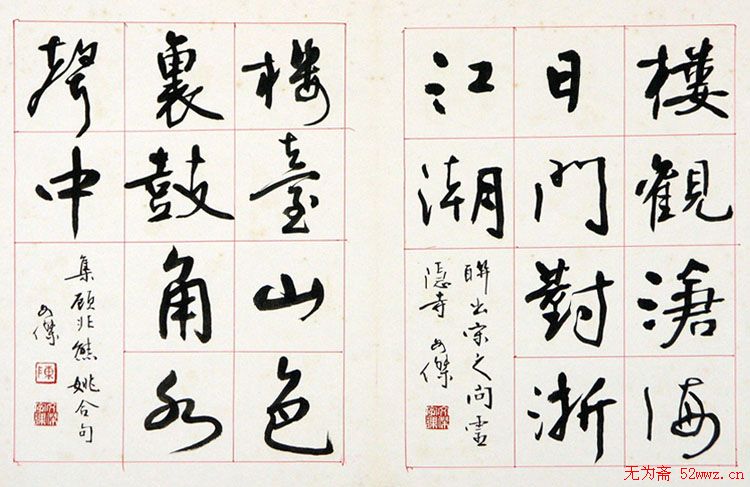 樓觀滄海
日門對浙
江潮
聯出宋之問靈
隱寺 傑
楼臺山色
裏鼓角水
聲中
集顧非熊姚合句
傑
无为斋 52wwz.cn